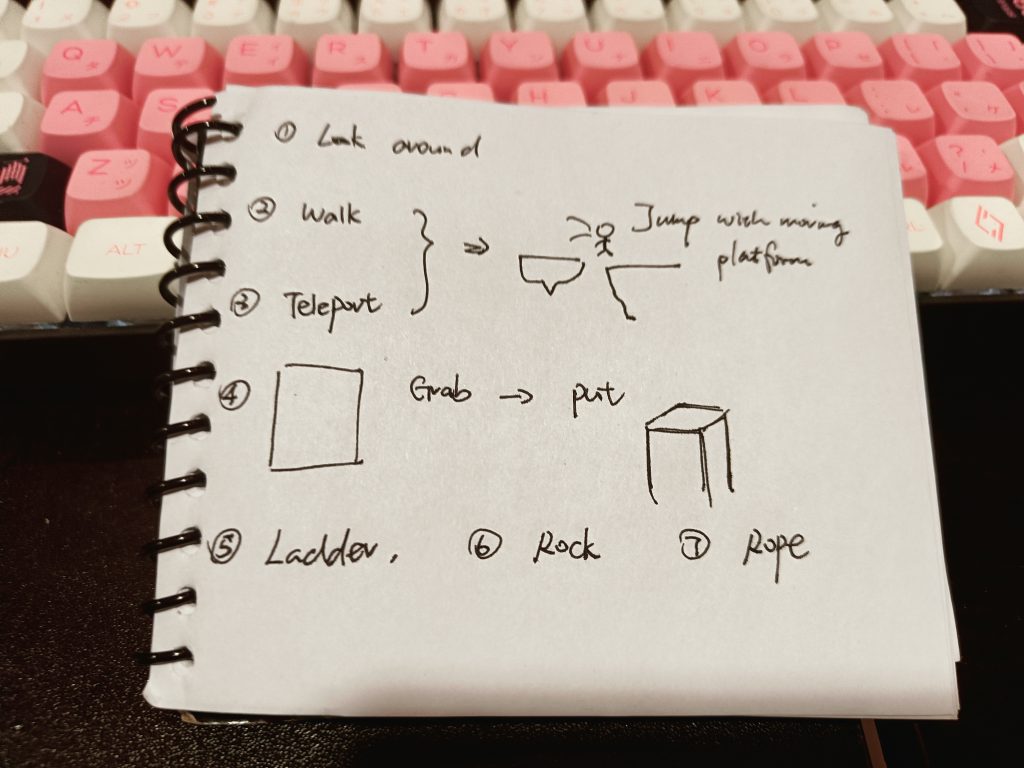 ① Look around
② Walk
⇒ Jump with moving
platform
③ Teleport
④ Grab → put
⑤ Ladder. ⑥ Rock ⑦ Rope
Q W E R T Y U I O P
A S H J K L
Z
ALT